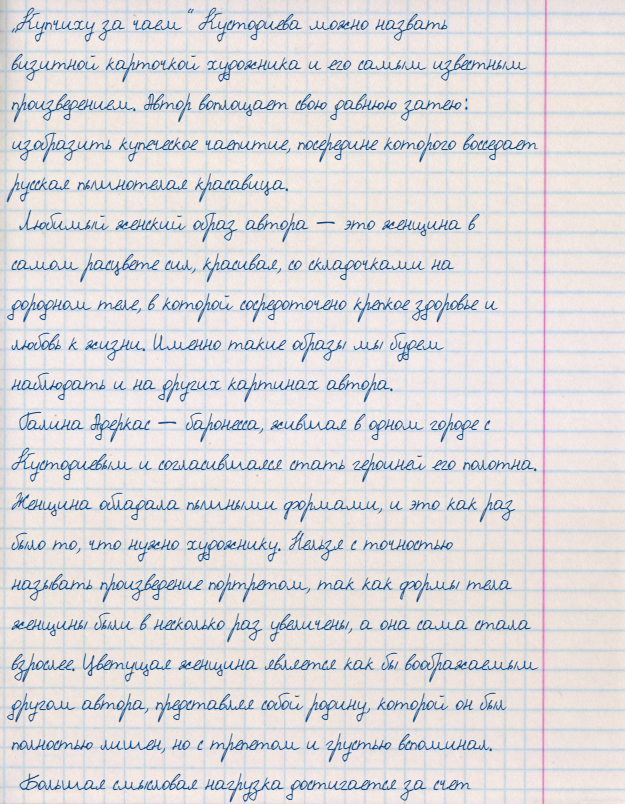 „Купчиху за чаем“ Кустодиева можно назвать
визитной карточкой художника и его самым известным
произведением. Автор воплощает свою давнюю затею:
изобразить купеческое чаепитие, посередине которого восседает
русская пышнотелая красавица.
Любимый женский образ автора — это женщина в
самом расцвете сил, красивая, со складочками на
дородном теле, в которой сосредоточено крепкое здоровье и
любовь к жизни. Именно такие образы мы будем
наблюдать и на других картинах автора.
Галина Адеркас — баронесса, жившая в одном городе с
Кустодиевым и согласившаяся стать героиней его полотна.
Женщина обладала пышными формами, и это как раз
было то, что нужно художнику. Нельзя с точностью
называть произведение портретом, так как формы тела
женщины были в несколько раз увеличены, а она сама стала
взрослее. Цветущая женщина является как бы воображаемым
другом автора, представляя собой родину, которой он был
полностью лишен, но с трепетом и грустью вспоминал.
Большая смысловая нагрузка достигается за счет